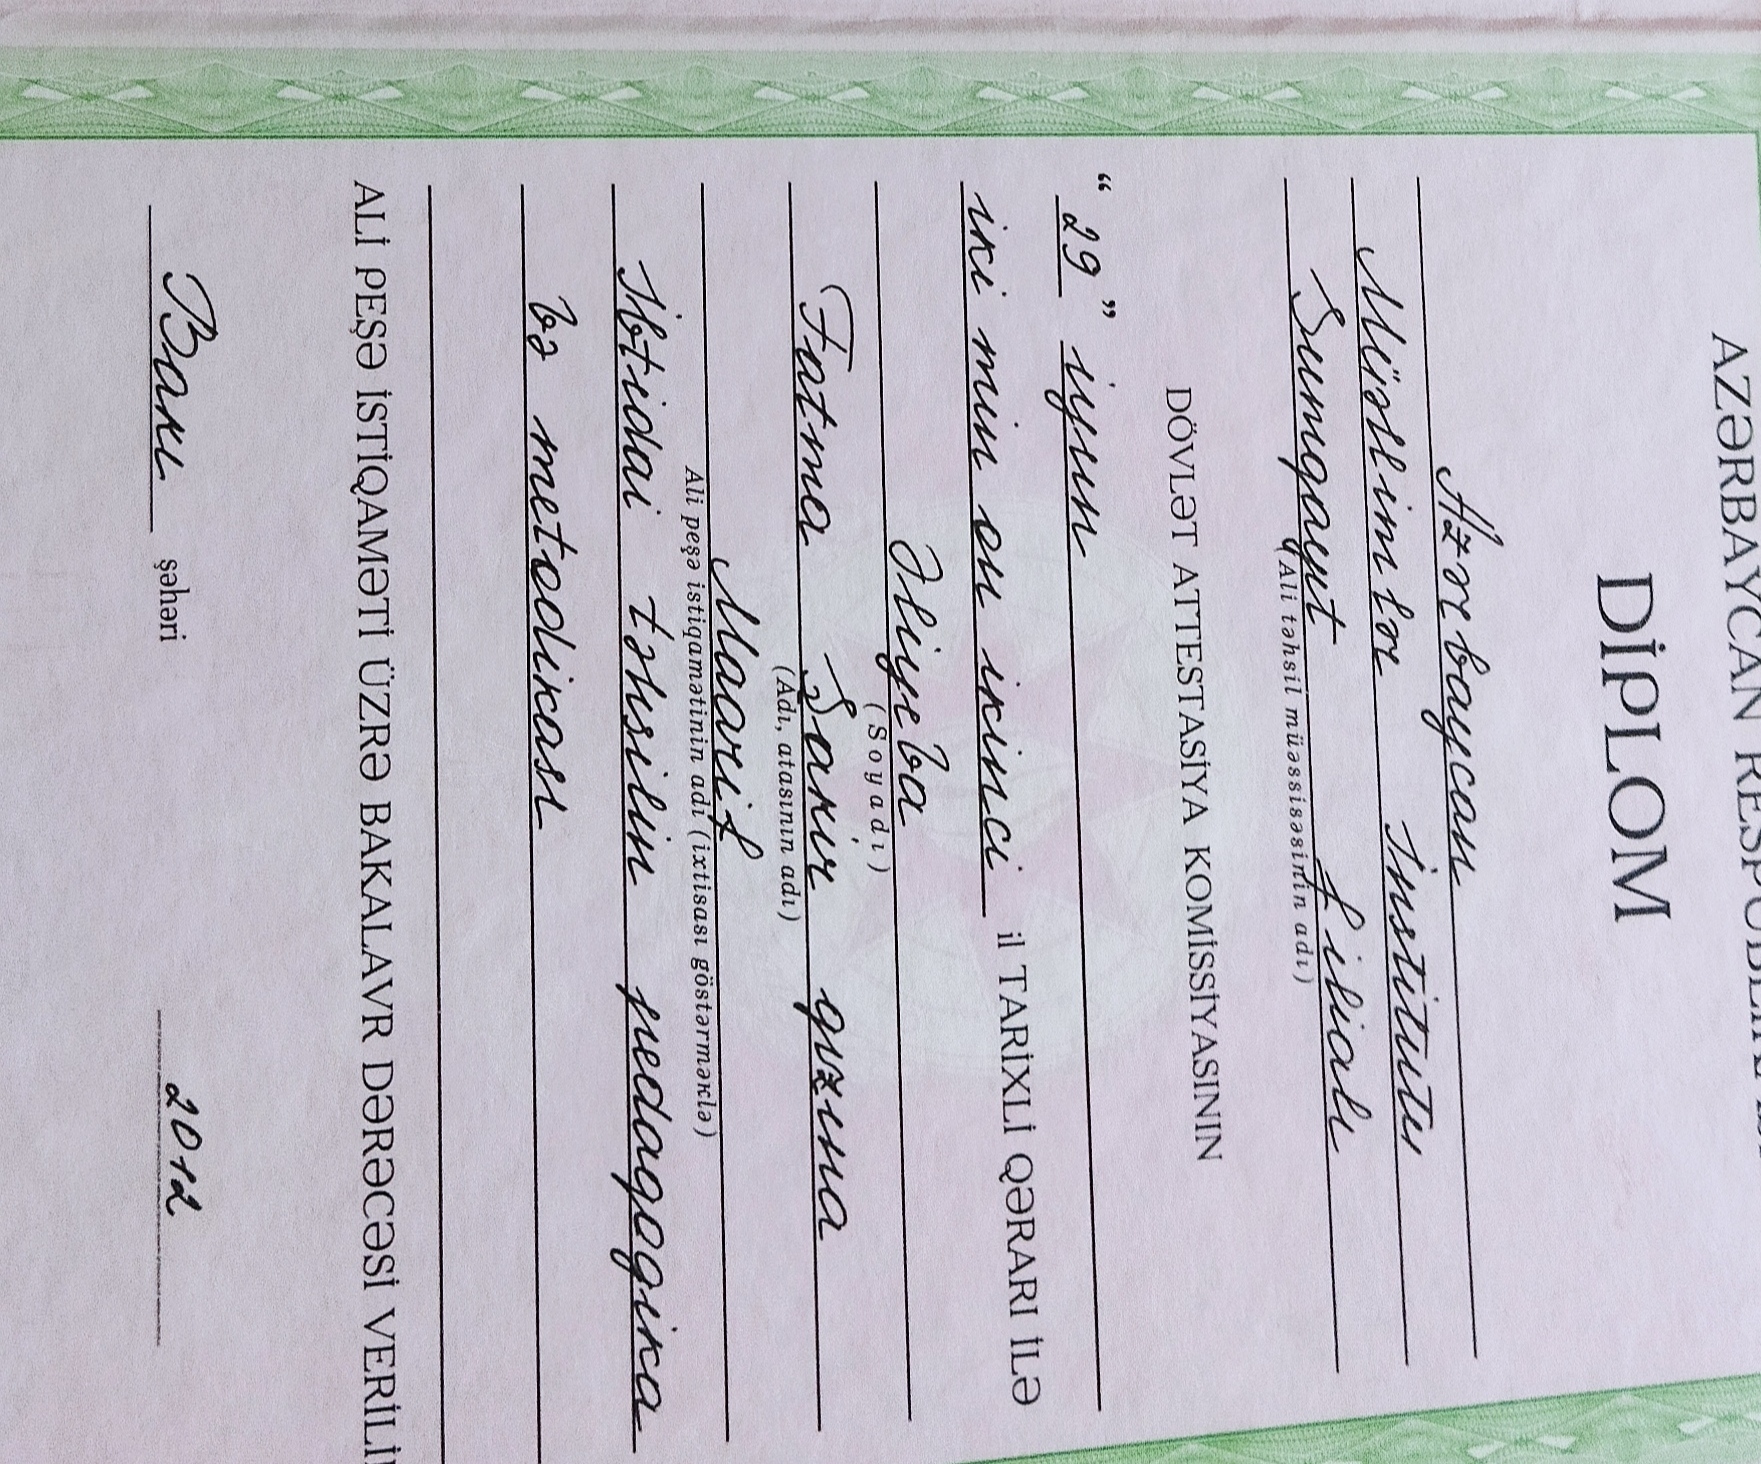 AZƏRBAYCAN RESPUBLİKA
DİPLOM
Azərbaycan
Müəllimlər İnstitutu
Sumqayıt filialı
(Ali təhsil müəssisəsinin adı)
DÖVLƏT ATTESTASİYA KOMİSSİYASININ
“ 29 ” iyun
iki min on ikinci il TARİXLİ QƏRARI İLƏ
Əliyeva
(Soyadı)
Fatma Şakir qızına
(Adı, atasının adı)
Maarif
Ali peşə istiqamətinin adı (ixtisası göstərməklə)
İbtidai təhsilin pedaqogika
və metodikası
ALİ PEŞƏ İSTİQAMƏTİ ÜZRƏ BAKALAVR DƏRƏCƏSİ VERİLİ
Bakı şəhəri 2012